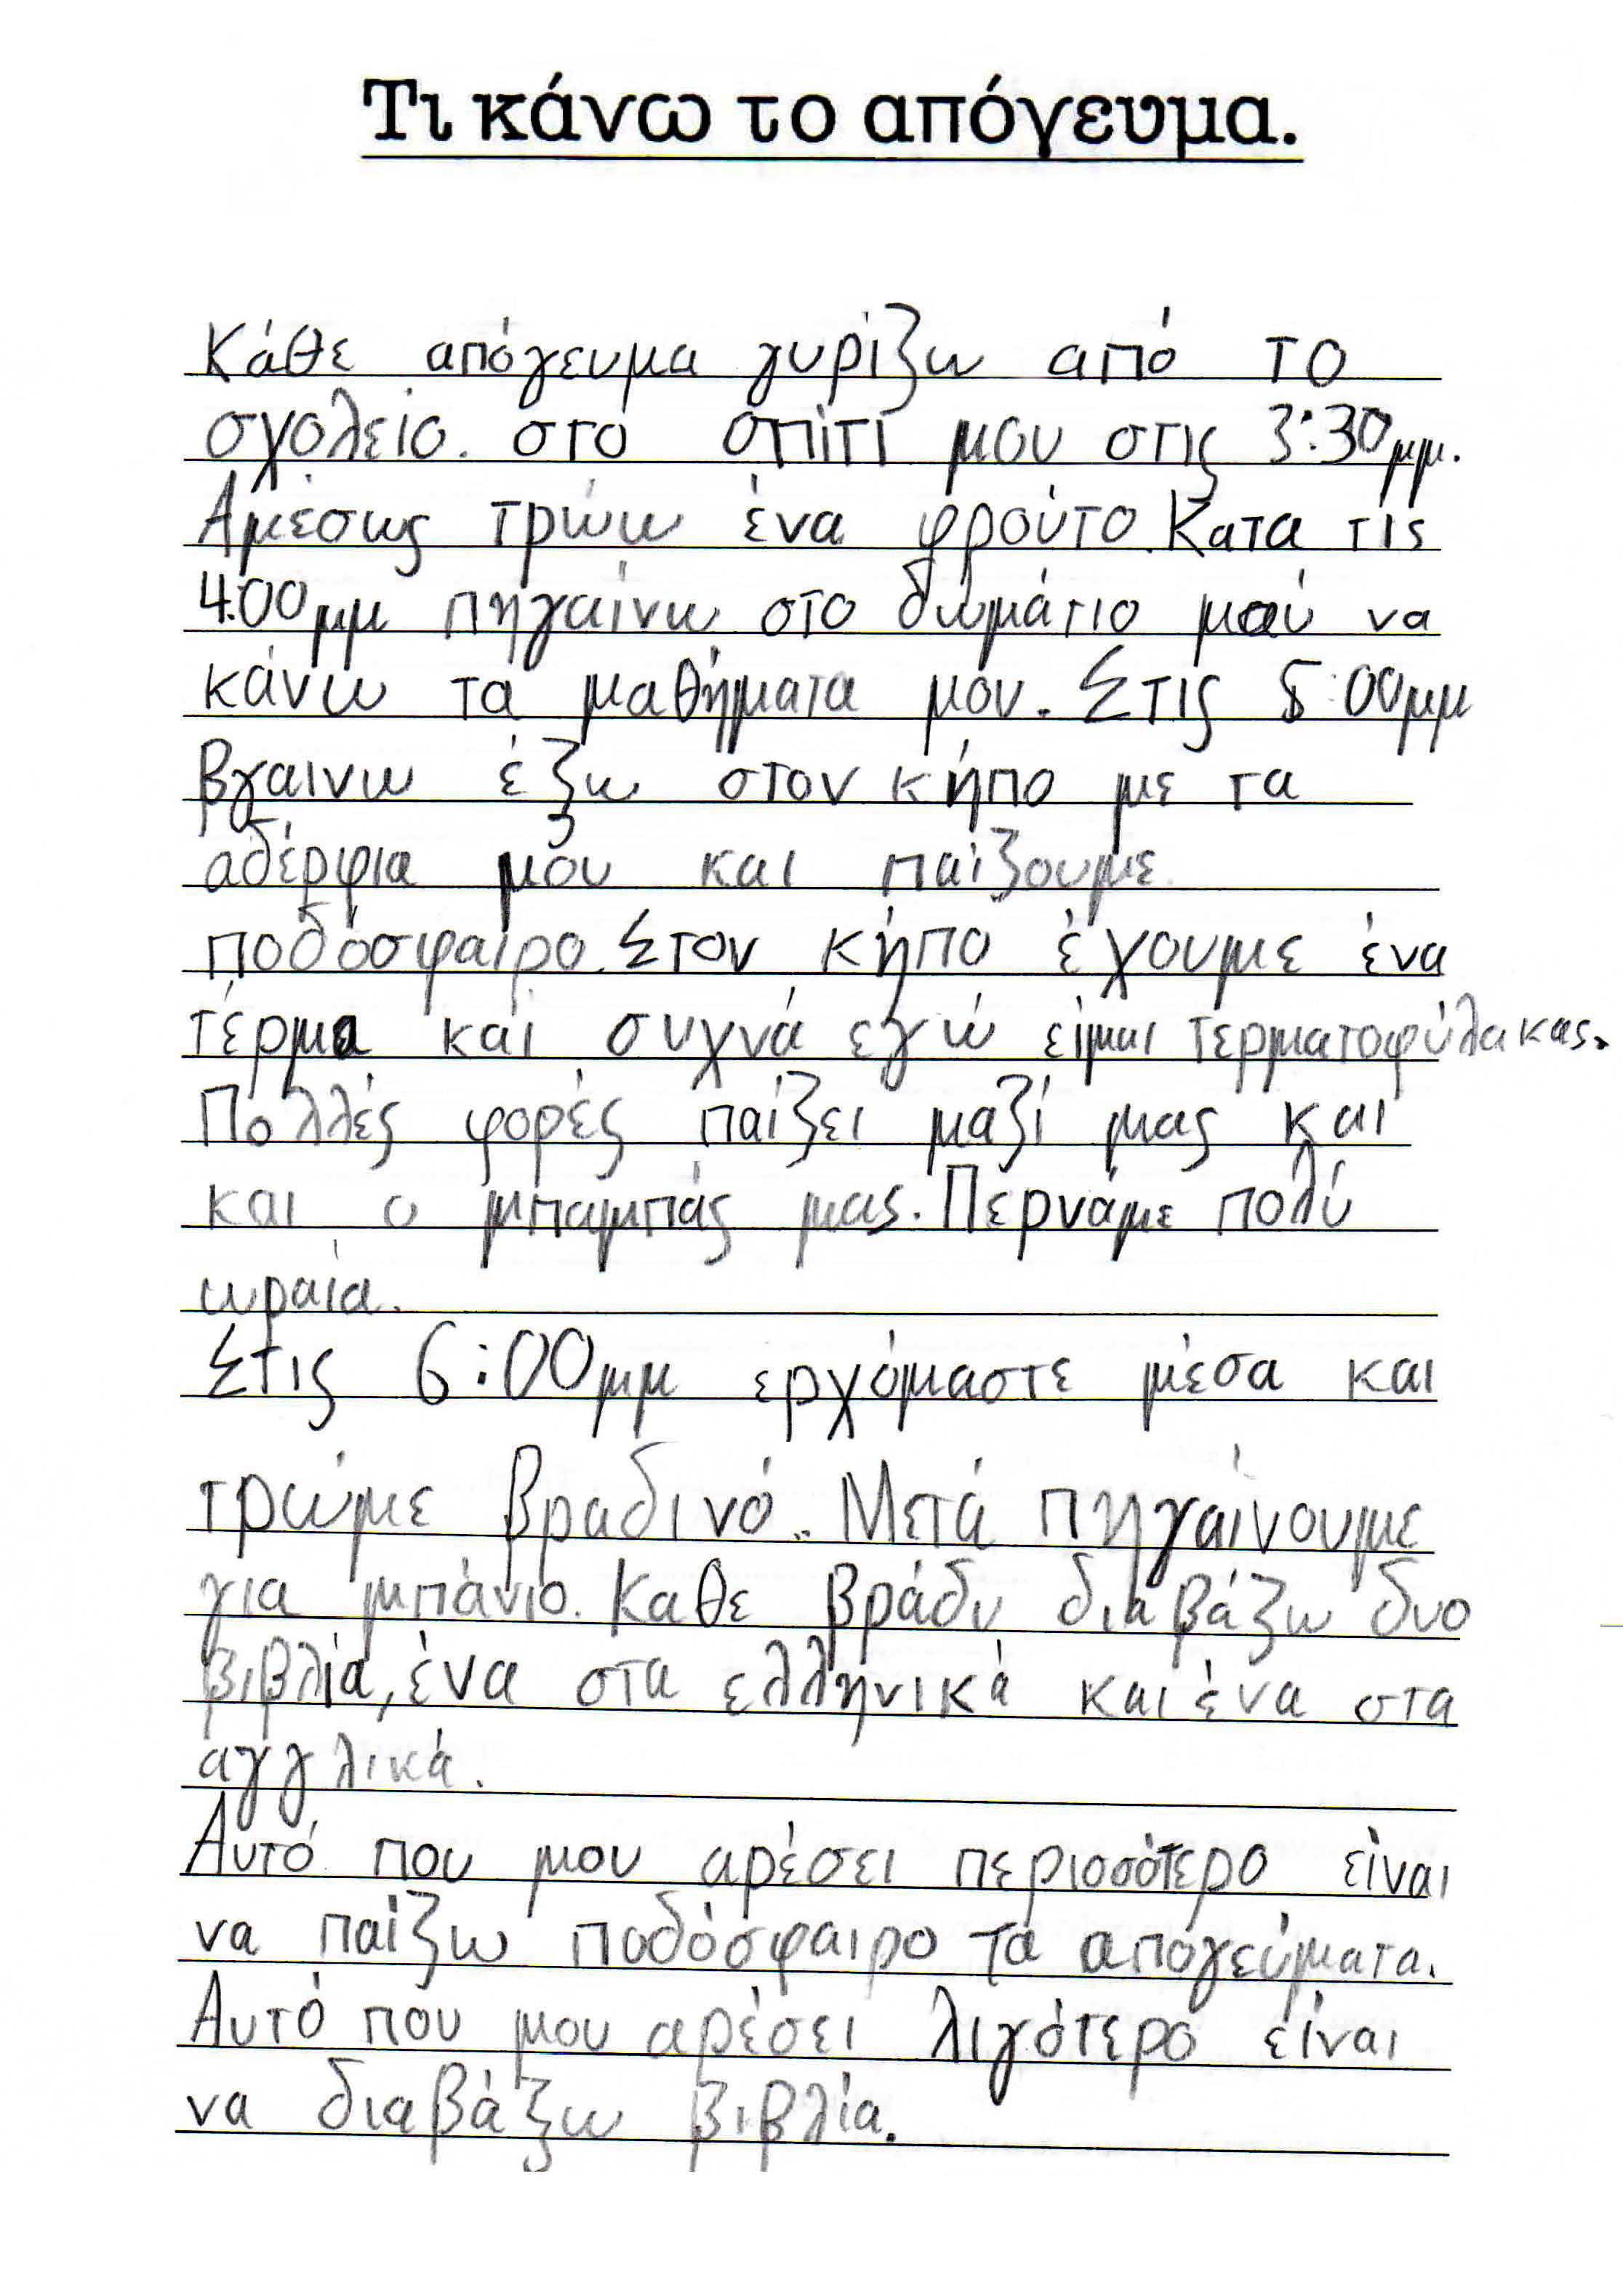 Τι κάνω το απόγευμα.
Κάθε απόγευμα γυρίζω από το
σχολείο. στο σπίτι μου στις 3:30μμ.
Αμέσως τρώω ένα φρούτο. Κατα τις
4:00μμ πηγαίνω στο δωμάτιο μού να
κάνω τα μαθήματα μου. Στις 5:00μμ
βγαινω έξω στον κήπο με τα
αδέρφια μου και παίζουμε
ποδόσφαιρο. Στον κήπο έχουμε ένα
τέρμα και συχνά εγώ είμαι τερματοφύλακας.
Πολλές φορές παίζει μαζί μας και
και ο μπαμπάς μας. Περνάμε πολύ
ωραία.
Στις 6:00μμ ερχόμαστε μέσα και
τρώμε βραδινό.. Μετά πηγαίνουμε
για μπάνιο. Καθε βράδυ διαβάζω δυο
βιβλία, ένα στα ελληνικά και ένα στα
αγγλικά.
Αυτό που μου αρέσει περισσότερο είναι
να παίζω ποδόσφαιρο τα απογεύματα.
Αυτό που μου αρέσει λιγότερο είναι
να διαβάζω βιβλία.